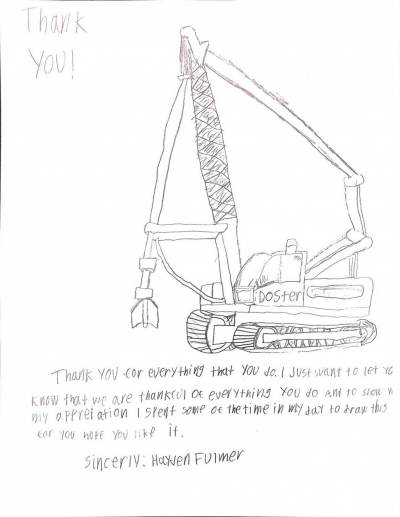 Thank
YOU!
DOSter
Thank YOU for everything that YOU do. I Just want to let yo
know that we are thankful of everything YOU do and to show
my appretation I spent some of the time in my day to draw this
for you hope you like it.
Sincerly: Hayden Fulmer